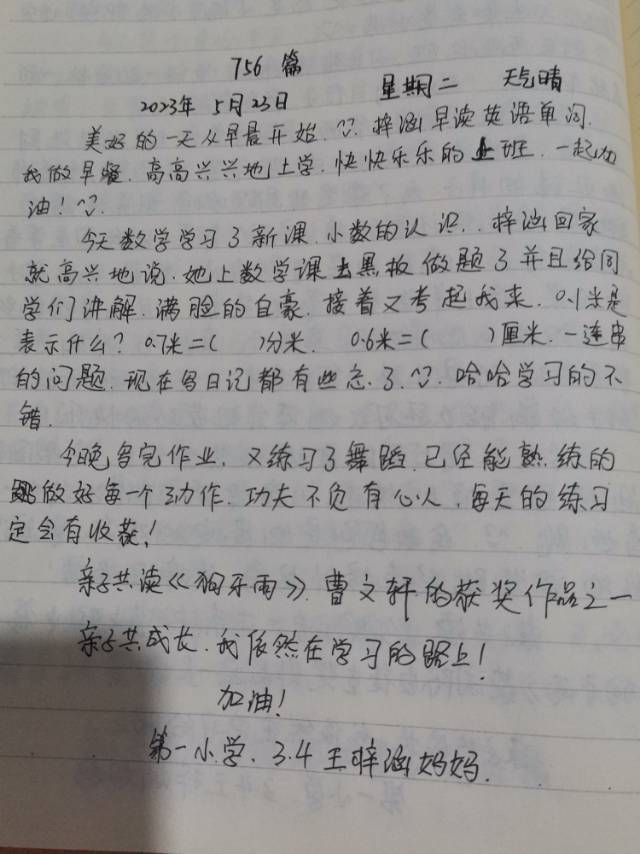 756 篇
2023年 5月23日 星期二 天气晴
美好的一天从早晨开始. 梓涵早读英语单词.
我做早餐. 高高兴兴地上学. 快快乐乐的上班. 一起加
油!
今天数学学习了新课. 小数的认识.. 梓涵回家
就高兴地说. 她上数学课去黑板做题了并且给同
学们讲解. 满脸的自豪. 接着又考起我来. 0.1米是
表示什么? 0.7米=( )分米. 0.6米=( )厘米. 一连串
的问题. 现在写日记都有些忘了. 哈哈学习的不
错.
今晚写完作业. 又练习了舞蹈. 已经能熟练的
做好每一个动作. 功夫不负有心人. 每天的练习
定会有收获!
亲子共读《狗牙雨》. 曹文轩的获奖作品之一
亲子共成长. 我依然在学习的路上!
加油!
第一小学. 3.4 王梓涵妈妈.